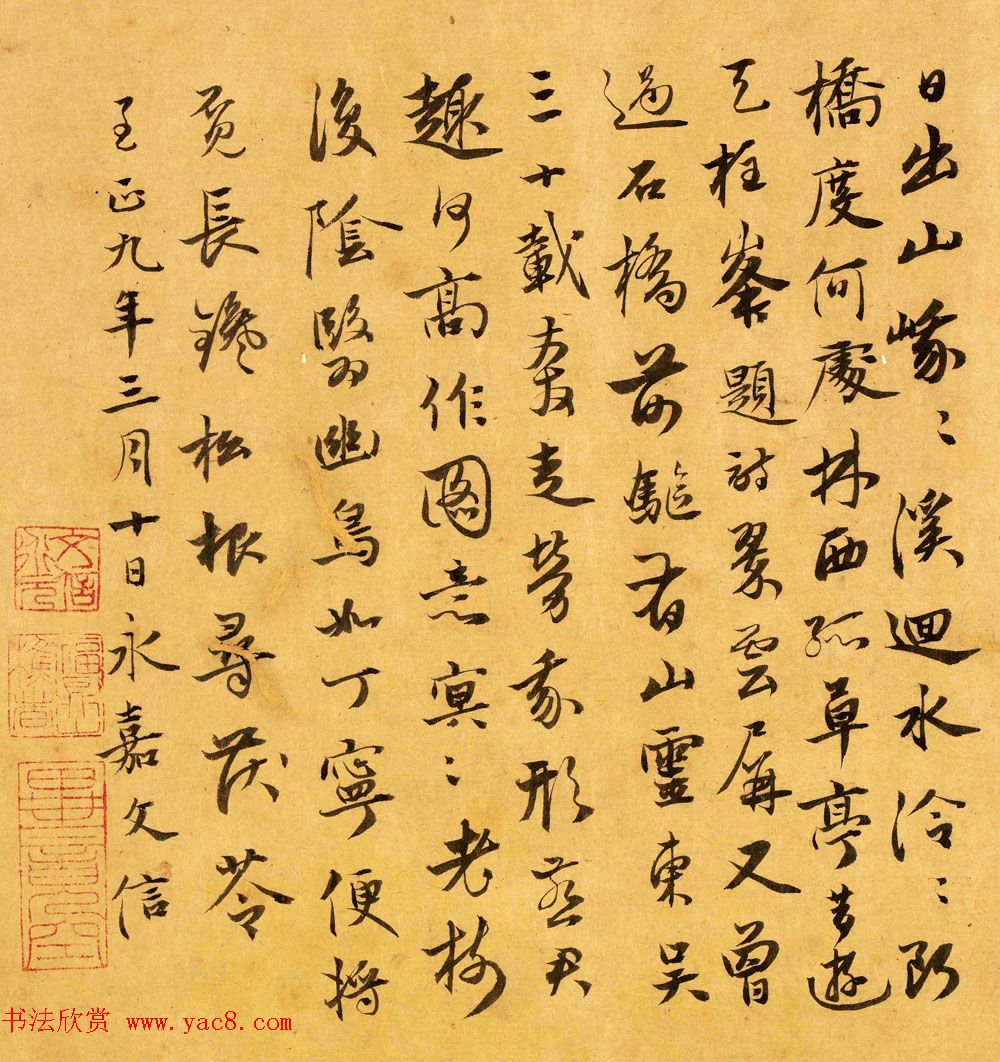 日出山峨〻溪迴水泠〻斷
橋度何處林西孤草亭昔遊
天柱峯題詩翠雲屏又曾
過石橋前驅有山靈東吳
三十載奔走勞我形羨君
趣何高作圖意冥〻老樹
後陰翳幽鳥如丁寧便將
負長鑱松根尋茯苓
至正九年三月十日永嘉文信
书法欣赏 www.yac8.com